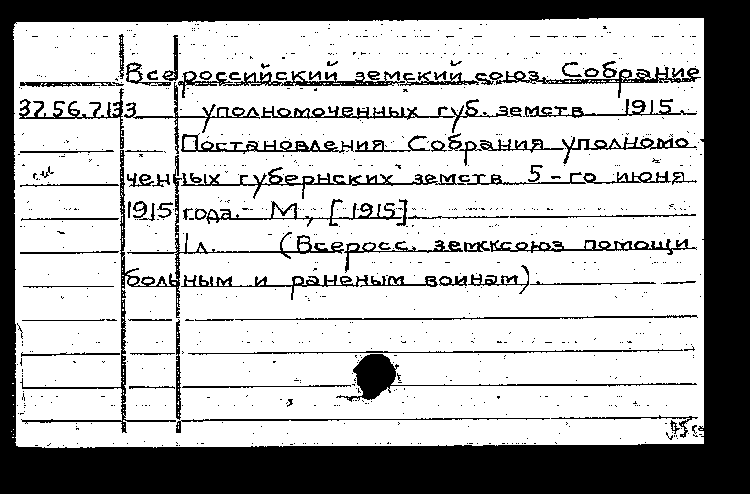 Всероссийский земский союз. Собрание
37.56.7.133 уполномоченных губ. земств. 1915.
Постановления Собрания уполномо-
ченных губернских земств 5-го июня
1915 года.- М., [1915].
1л. (Всеросс. земкксоюз помощи
больным и раненым воинам).